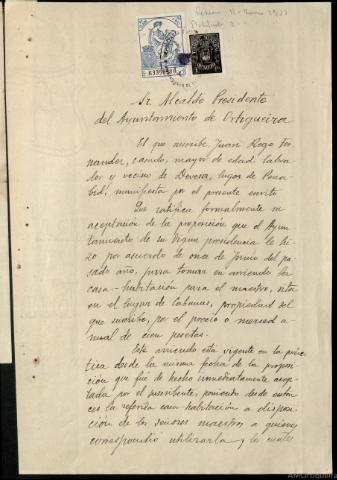 Sr. Alcalde Presidente
del Ayuntamiento de Ortigueira
El que suscribe Juan Rego Fer
nandez, casado, mayor de edad labra
dor y vecino de Devesa, lugar de
manifiesta por el presente escrito
Que ratifica formalmente su
aceptación de la proposición que el Ayun
tamiento de su digna presidencia le hi
zo por acuerdo de once de Junio del pa
sado año, para tomar en arriendo la
casa-habitación para el maestro, sita
en el lugar de Cabanas, propiedad del
que suscribe, por el precio o merced a
nual de cien pesetas.
Este arriendo está vigente en la prác
tica desde la misma fecha de la proposi
ción que fue de hecho inmediatamente acep
tada por el suscribente, poniendo desde enton
ces la referida casa habitación a disposi
ción de los señores maestros a quienes
correspondió utilizarla, y le cuales